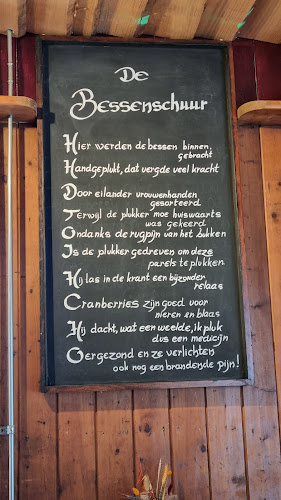 De
Bessenschuur
Hier werden de bessen binnen
gebracht
Handgeplukt, dat vergde veel kracht
Door eilander vrouwenhanden
gesorteerd
Terwijl de plukker moe huiswaarts
was gekeerd
Ondanks de rugpijn van het bukken
Is de plukker gedreven om deze
parels te plukken
Hij las in de krant een bijzonder
relaas
Cranberries zijn goed voor
nieren en blaas
Hij dacht, wat een weelde, ik pluk
dus een medicijn
Oergezond en ze verlichten
ook nog een brandende pijn!